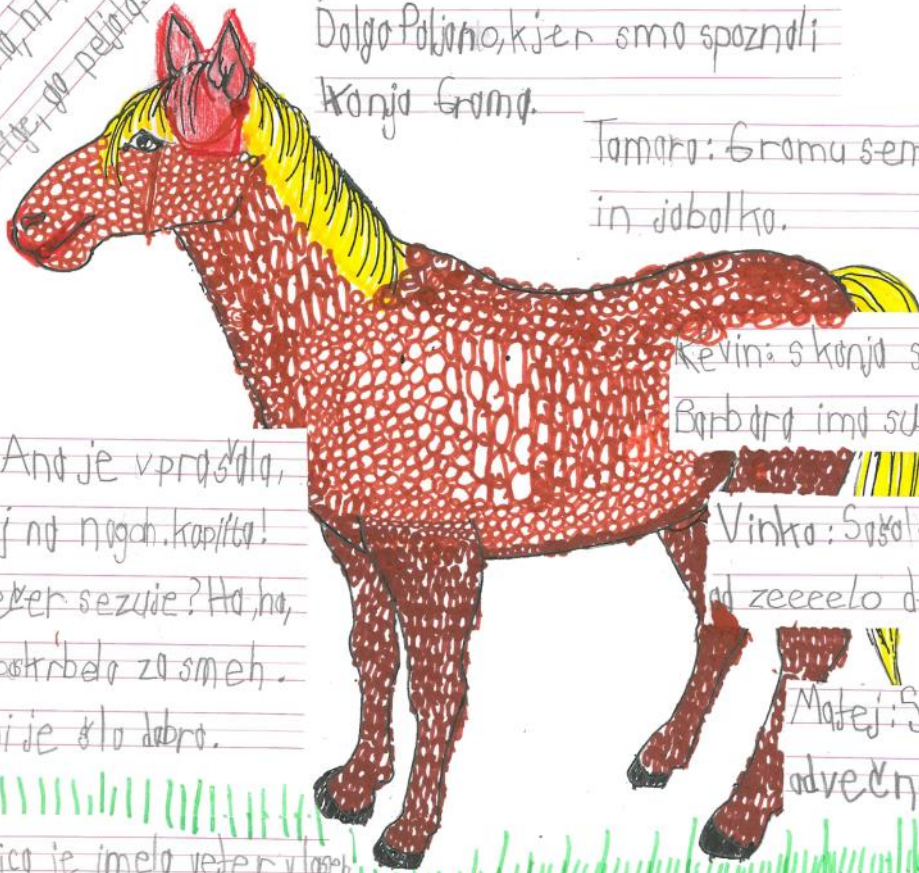 Dolgo Poljano, kjer smo spoznali
konja Grama.
Tamara: Gramu sem
in jabolko.
Kevin: s konja s
Barbara ima su
Ana je vprašala,
j na nogah. kopita!
sezuje? Ha, ha,
oskrbela za smeh.
je šlo dobro.
Vinko:
od zeeeelo d
Matej: S
odvečn
je imela veter v laseh